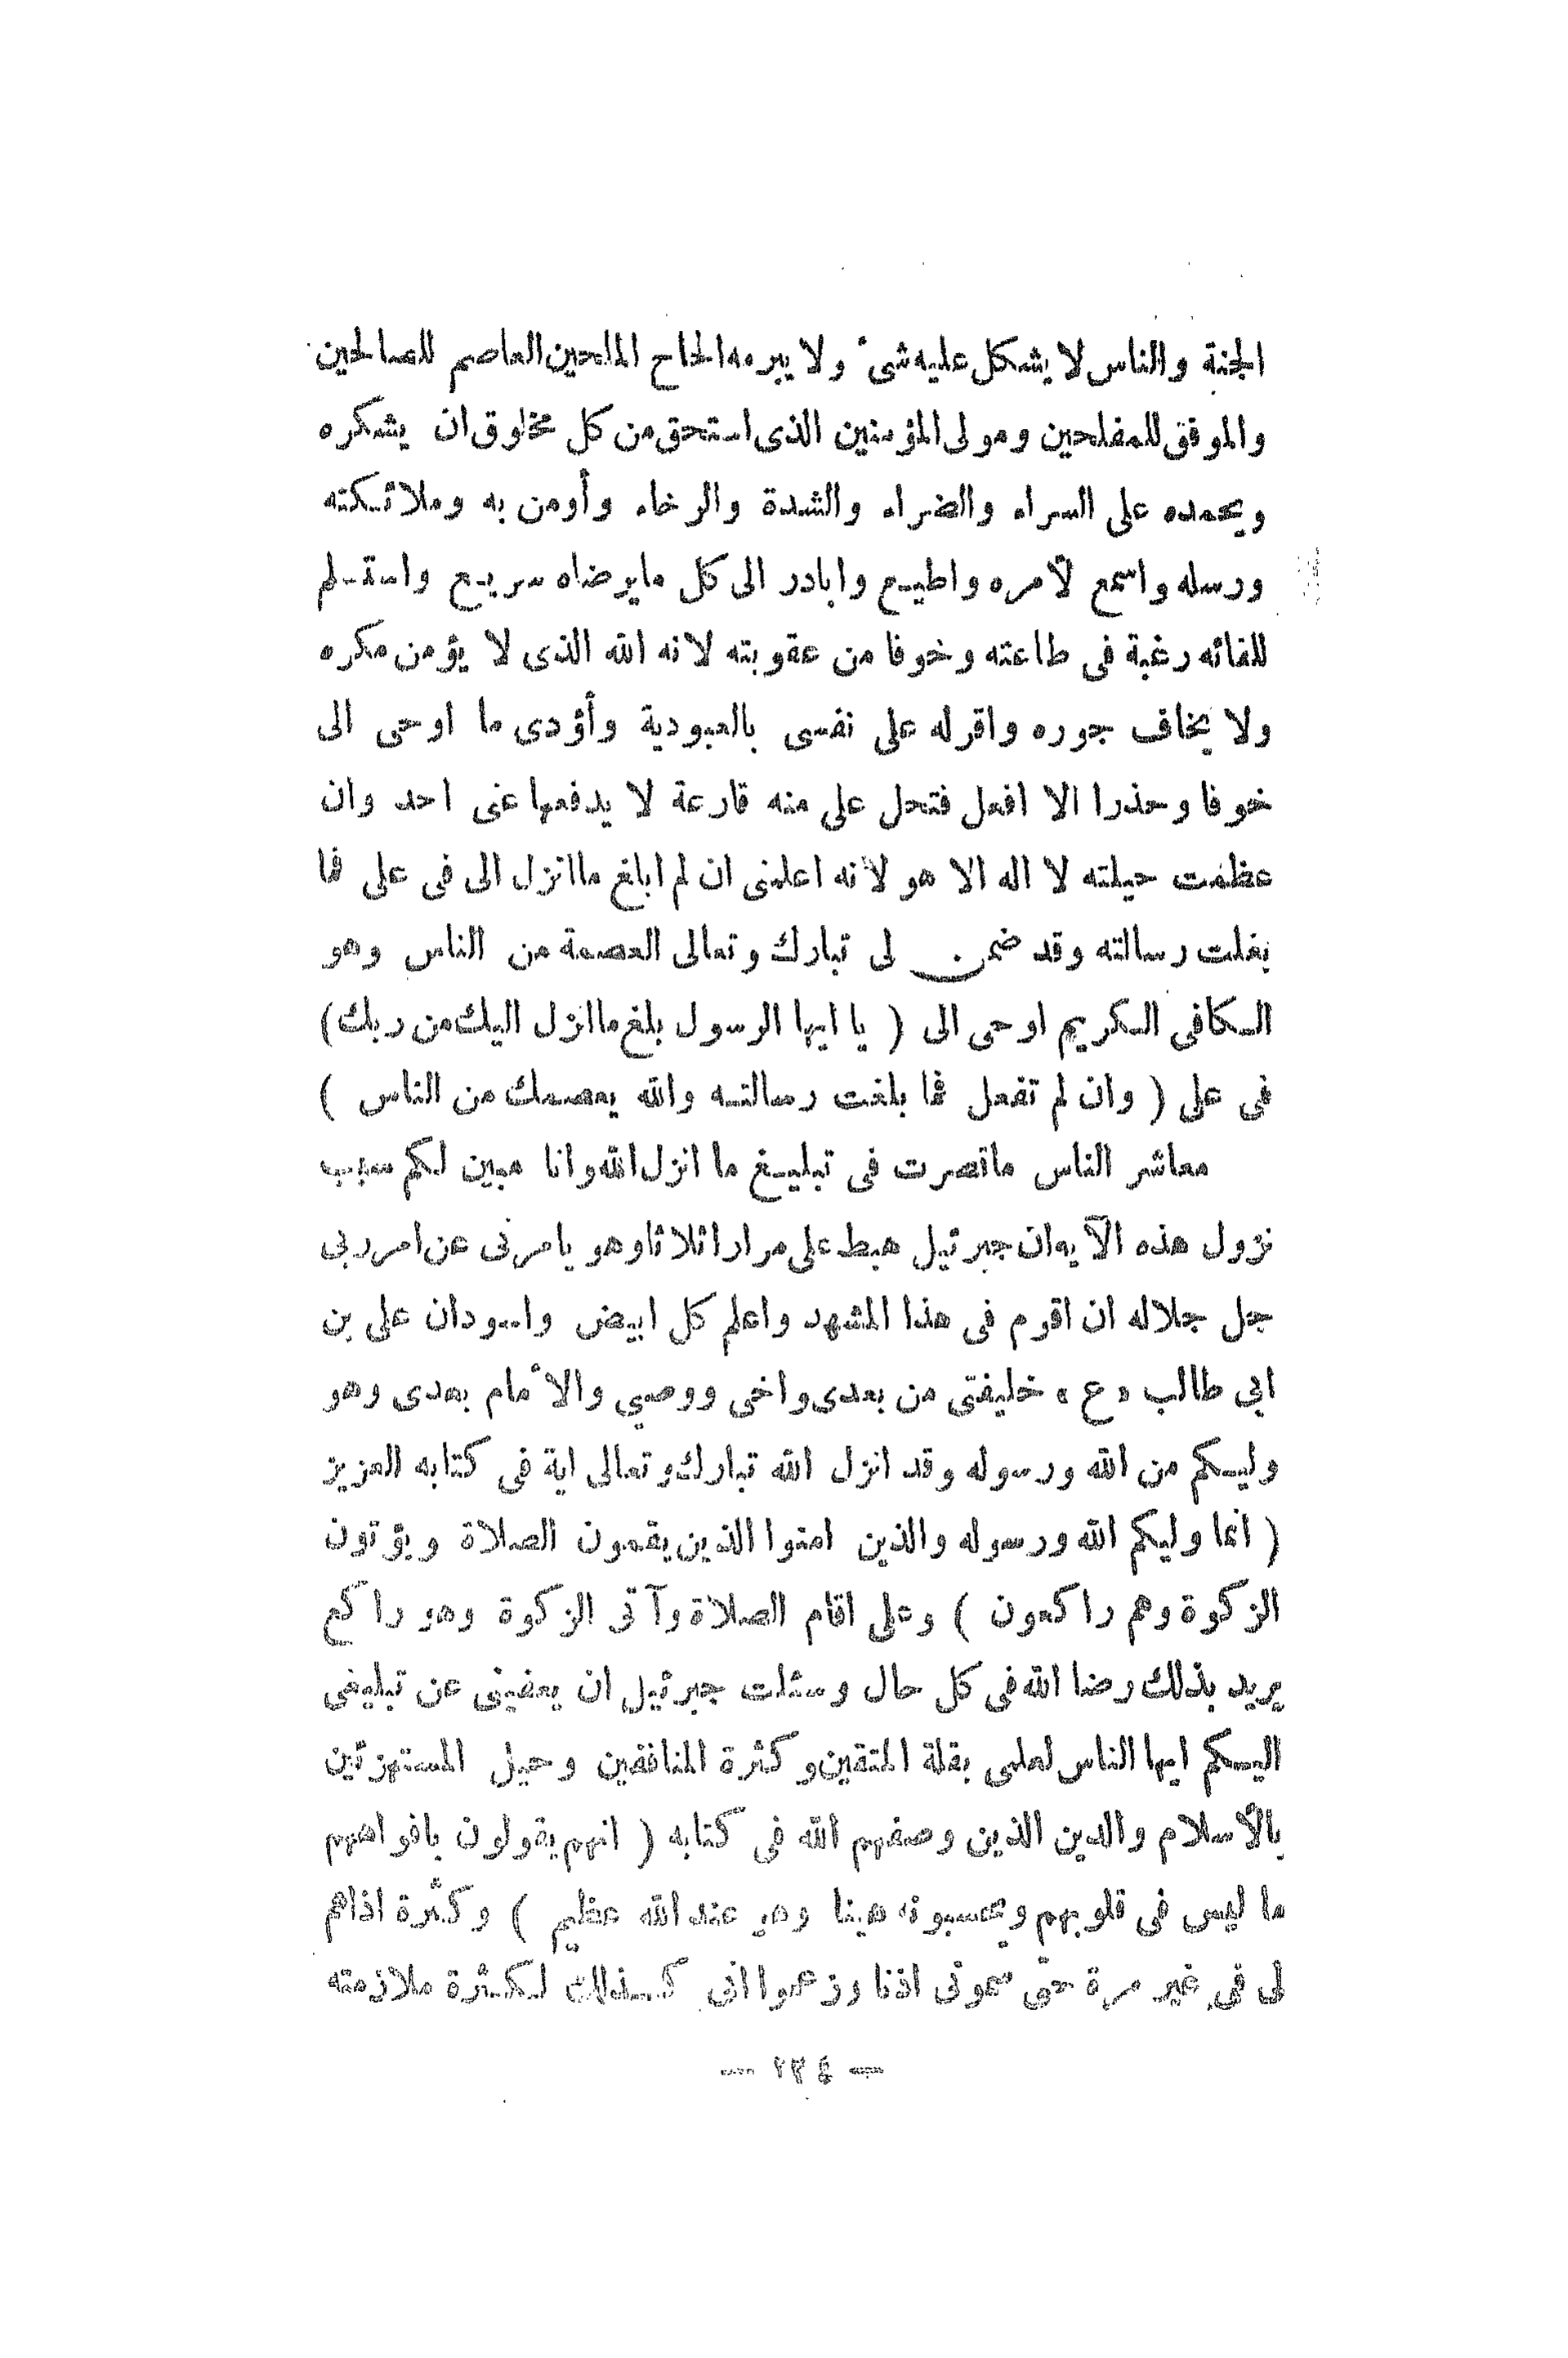 الجنة والناس لا يشكل عليه شيء ولا يبرمه الحاح الملحين العاصم للصالحين
والموفق للمفلحين ومولى المؤمنين الذى استحق من كل مخلوق ان يشكره
ويحمده على السراء والضراء والشدة والرخاء وأومن به وملائكته
ورسله واسمع لأمره واطيع وابادر الى كل مايرضاه سريع واستسلم
للقائه رغبة فى طاعته وخوفا من عقوبته لانه الله الذى لا يؤمن مكره
ولا يخاف جوره واقرله على نفسى بالعبودية وأؤدى ما اوحى الى
خوفا وحذرا الا افعل فتحل على منه قارعة لا يدفعها عنى احد وان
عظمت حيلته لا اله الا هو لأنه اعلمنى ان لم ابلغ ماانزل الى فى على فما
بغلت رسالته وقد ضمن لى تبارك وتعالى العصمة من الناس وهو
الكافى الكريم اوحى الى ( يا ايها الرسول بلغ ماانزل اليك من ربك)
فى على ( وان لم تفعل فما بلغت رسالته والله يعصمك من الناس )
معاشر الناس ماقصرت فى تبليغ ما انزل الله وانا مبين لكم سبب
نزول هذه الآيه ان جبرئيل هبط على مرارا ثلاثا وهو يامرنى عن امر ربى
جل جلاله ان اقوم فى هذا المشهد واعلم كل ابيض واسودان على بن
ابي طالب «ع» خليفتى من بعدى واخى ووصيي والأمام بعدى وهو
وليكم من الله ورسوله وقد انزل الله تبارك وتعالى اية فى كتابه العزيز
( انما وليكم الله ورسوله والذين امنوا الذين يقمون الصلاة ويؤتون
الزكوة وهم راكعون ) وعلى اقام الصلاة وآتى الزكوة وهو راكع
يريد بذلك رضا الله فى كل حال وسئلت جبرئيل ان يعفينى عن تبليغى
اليكم ايها الناس لعلمى بقلة المتقين وكثرة المنافقين وحيل المستهزئين
بالأسلام والدين الذين وصفهم الله فى كتابه ( انهم يقولون بافواههم
ما ليس فى قلوبهم ويحسبونه هينا وهو عند الله عظيم ) وكثرة اذاهم
لى فى غير مرة حتى سموتى اذنا وزعموا انى كذلك لكثرة ملازمته
— ٢٣٤ —